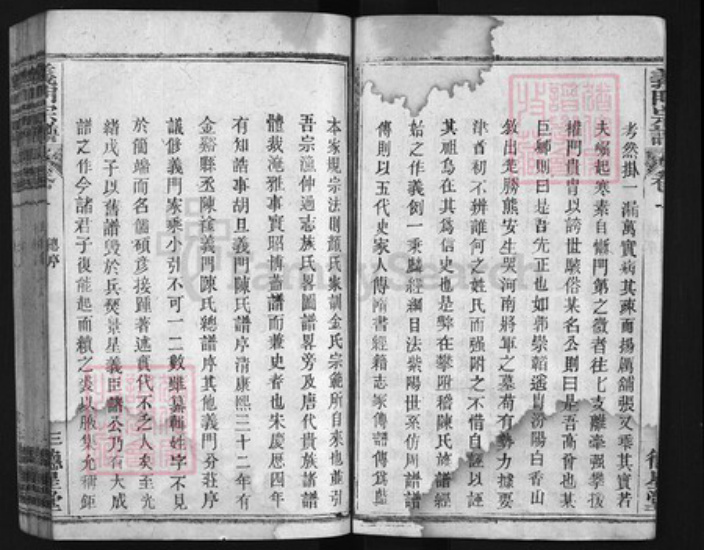 考然掛一漏萬實病其疎而揚厲舖張又乖其實若
夫崛起寒素自慚門第之微者往匕支離牽強攀援
權門貴胄以誇世駭俗某名公則曰是吾高曾也某
巨卿則曰是吾先正也如郭崇韜遙冒汾陽白香山
敘出楚勝熊安生哭河南將軍之墓苟有勢力據要
津首初不辨誰何之姓氏而强附之不惜自誣以誣
其祖烏在其為信史也是弊在攀附稽陳氏族譜經
始之作義例一秉麟經綱目法紫陽世系仿周譜
傳則以五代史家人傳隋書經籍志家傳譜傳為藍
本家規宗法則顏氏家訓金氏宗範所自來也並引
吾宗漁仲通志族氏畧圖譜畧旁及唐代貴族諸譜
體裁淹雅事實昭博蓋譜而兼史者也宋慶歷四年
有知誥事胡旦義門陳氏譜序清康熙三十二年有
金谿縣丞陳淦義門陳氏總譜序其他義門分莊序
議修義門家乘小引不可一二數雖纂輯姓字不見
於簡端而名儒碩彥接踵著述實代不乏人矣至光
緒戊子以舊譜毀於兵燹景星義臣諸公乃有大成
譜之作今諸君子復能起而續之裘以腋集允稱鉅
義門宗譜
總序
三 德星堂